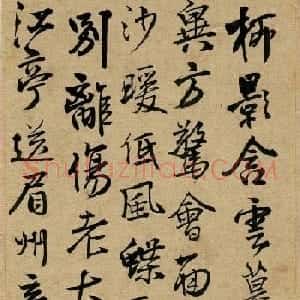 柳影含雲幕
異方驚會面
沙暖低風蝶
別離傷老大
江亭送眉州